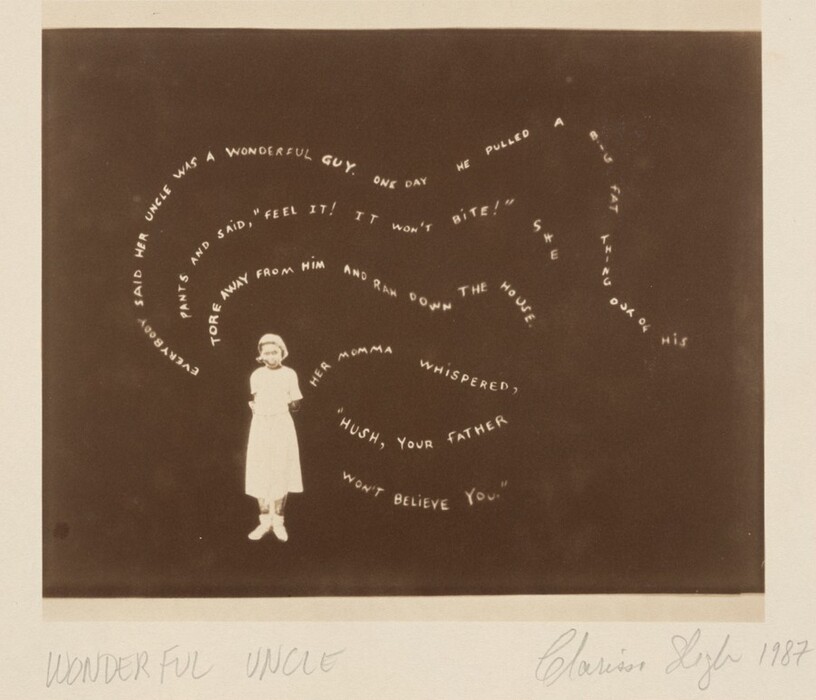 EVERYBODY SAID HER UNCLE WAS A WONDERFUL GUY. ONE DAY HE PULLED A BIG FAT THING OUT OF HIS
PANTS AND SAID, "FEEL IT! IT WON'T BITE!" SHE
TORE AWAY FROM HIM AND RAN DOWN THE HOUSE.
HER MOMMA WHISPERED,
"HUSH, YOUR FATHER
WON'T BELIEVE YOU."
WONDERFUL UNCLE
Clarissa Sligh 1987